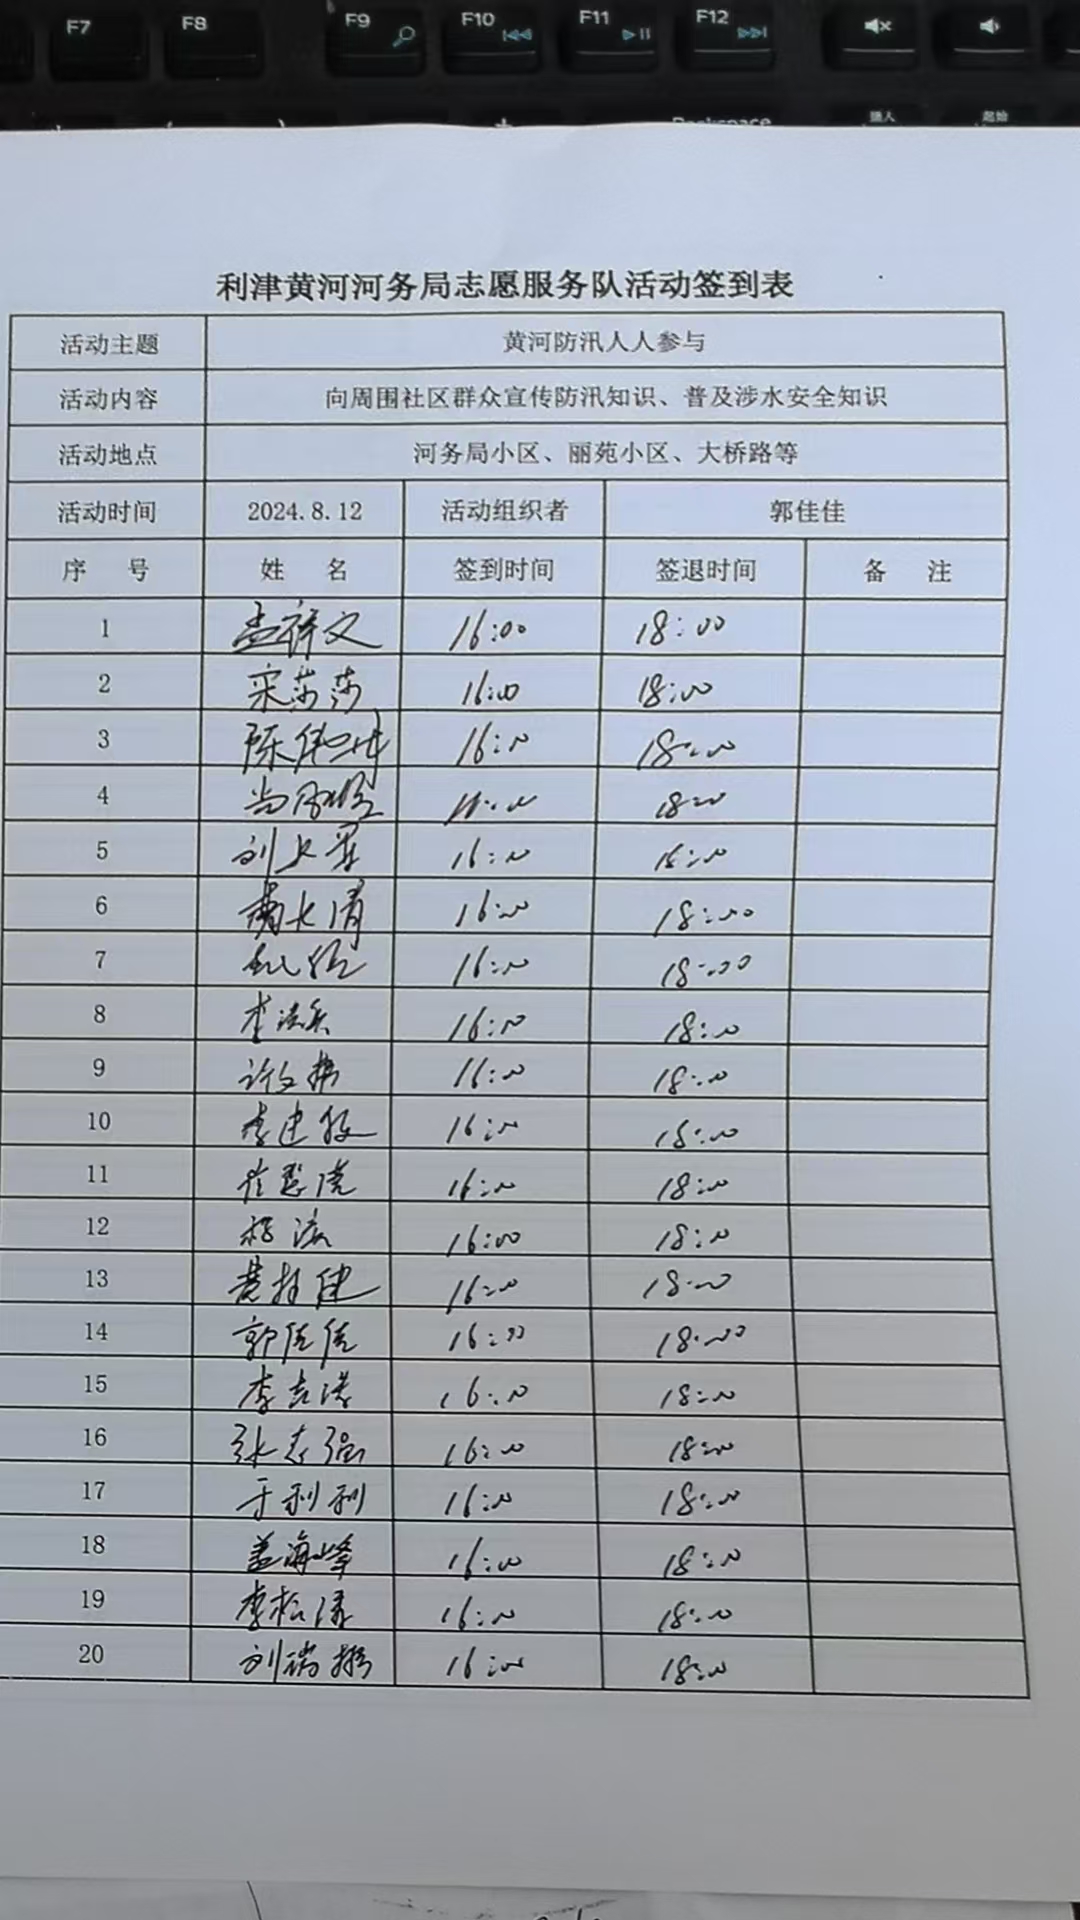 F7 F8 F9 F10 F11 F12
Backspace 插入 起始
利津黄河河务局志愿服务队活动签到表
活动主题 黄河防汛人人参与
活动内容 向周围社区群众宣传防汛知识、普及涉水安全知识
活动地点 河务局小区、丽苑小区、大桥路等
活动时间 2024.8.12 活动组织者 郭佳佳
序 号 姓 名 签到时间 签退时间 备 注
1 孟祥文 16:00 18:00
2 宋莎莎 16:00 18:00
3 16:00 18:00
4 18:00
5 16:00
6 16:00 18:00
7 16:00 18:00
8 16:00 18:00
9 16:00 18:00
10 16:00 18:00
11 16:00 18:00
12 16:00 18:00
13 16:00 18:00
14 郭佳佳 16:00 18:00
15 16:00 18:00
16 张志强 16:00 18:00
17 于利利 16:00 18:00
18 盖海峰 16:00 18:00
19 李松涛 16:00 18:00
20 16:00 18:00